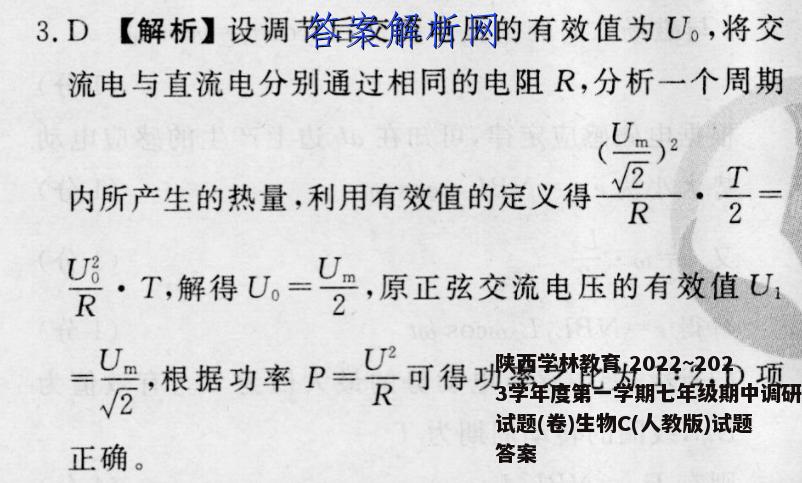 3. D 【解析】设调节后交流电压的有效值为 U₀,将交
答案解析网
流电与直流电分别通过相同的电阻 R,分析一个周期
内所产生的热量,利用有效值的定义得 (Uₘ/√2)²/R · T/2 =
U₀²/R · T,解得 U₀ = Uₘ/2,原正弦交流电压的有效值 U₁
Uₘ/√2,根据功率 P = U²/R 可得功率之比为 1:2,D 项
正确。
陕西学林教育,2022~202
3学年度第一学期七年级期中调研
试题(卷)生物C(人教版)试题
答案